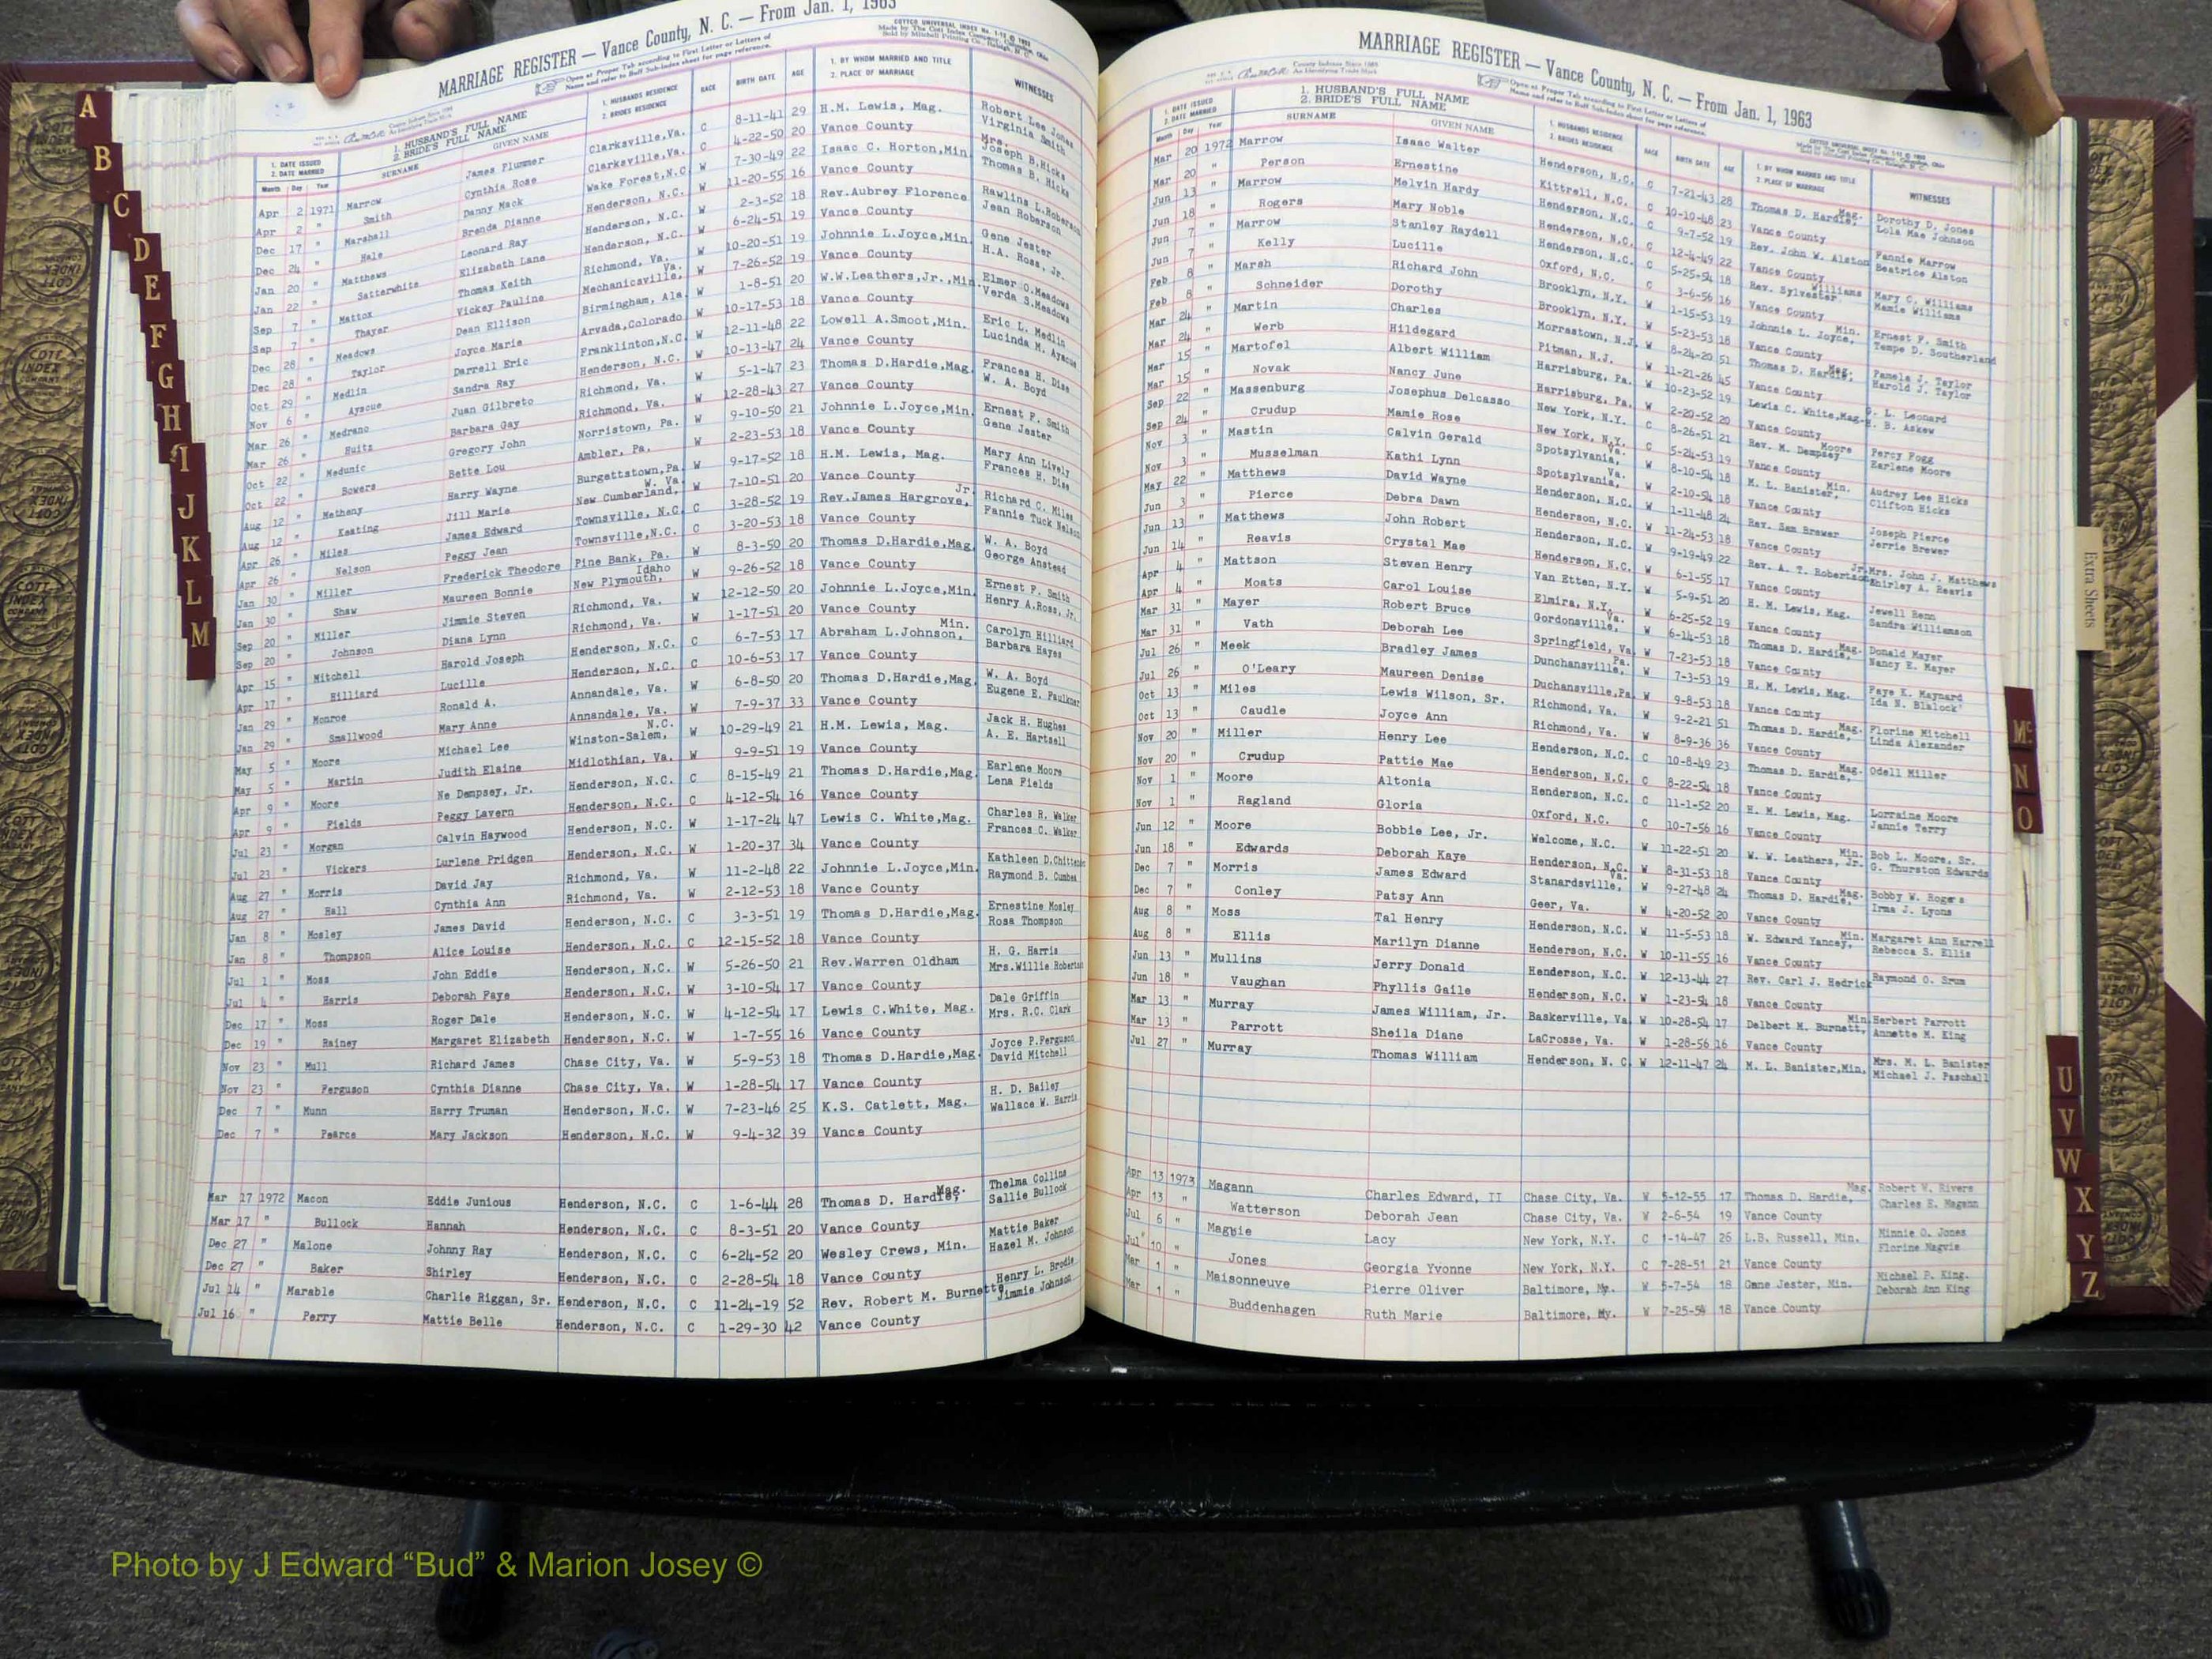 A
B
C
D
E
F
G
H
I
J
K
L
M
MARRIAGE REGISTER — Vance County, N. C. — From Jan. 1, 1963
1. DATE ISSUED 2. DATE MARRIED
1. HUSBAND'S FULL NAME 2. BRIDE'S FULL NAME
1. HUSBANDS RESIDENCE 2. BRIDES RESIDENCE
RACE BIRTH DATE AGE
1. BY WHOM MARRIED AND TITLE 2. PLACE OF MARRIAGE
WITNESSES
Month Day Year SURNAME GIVEN NAME
Apr 2 1971 Marrow James Flummer Clarksville,Va. C 8-11-41 29 H.M. Lewis, Mag. Robert Lee Jones
Apr 2 " Smith Cynthia Rose Clarksville,Va. C 4-22-50 20 Vance County Virginia Smith
Dec 17 " Marshall Danny Mack Wake Forest,N.C. W 7-30-49 22 Isaac C. Horton,Min. Mrs. Joseph B.Hicks
Dec 24 " Hale Brenda Dianne Henderson, N.C. W 11-20-55 16 Vance County Thomas B. Hicks
Jan 20 " Matthews Leonard Ray Henderson, N.C. W 2-3-52 18 Rev.Aubrey Florence Rawlins L.Roberson
Jan 22 " Satterwhite Elizabeth Lane Henderson, N.C. W 6-24-51 19 Vance County Jean Roberson
Sep 7 " Mattox Thomas Keith Richmond, Va. W 10-20-51 19 Johnnie L.Joyce,Min. Gene Jester
Sep 7 " Thayer Vickey Pauline Mechanicsville, Va. W 7-26-52 19 Vance County H.A. Ross, Jr.
Dec 28 " Meadows Dean Ellison Birmingham, Ala. W 1-8-51 20 W.W.Leathers,Jr.,Min. Elmer O.Meadows
Dec 28 " Taylor Joyce Marie Arvada,Colorado W 10-17-53 18 Vance County Verda S.Meadows
Oct 29 " Medlin Darrell Eric Franklinton,N.C. W 12-11-48 22 Lowell A.Smoot,Min. Eric L. Medlin
Nov 6 " Ayscue Sandra Ray Henderson, N.C. W 10-13-47 24 Vance County Lucinda M. Ayscue
Mar 26 " Medrano Juan Gilbreto Richmond, Va. W 5-1-47 23 Thomas D.Hardie,Mag. Frances H. Dise
Mar 26 " Huitz Barbara Gay Richmond, Va. W 12-28-43 27 Vance County W. A. Boyd
Oct 22 " Medunic Gregory John Norristown, Pa. W 9-10-50 21 Johnnie L.Joyce,Min. Ernest F. Smith
Oct 22 " Bowers Bette Lou Ambler, Pa. W 2-23-53 18 Vance County Gene Jester
Aug 12 " Metheny Harry Wayne Burgettstown,Pa. W 9-17-52 18 H.M. Lewis, Mag. Mary Ann Lively
Aug 12 " Keating Jill Marie New Cumberland, W. Va. W 7-10-51 20 Vance County Frances H. Dise
Apr 26 " Miles James Edward Townsville, N.C. C 3-28-52 19 Rev.James Hargrove, Jr. Richard C. Miles
Apr 26 " Nelson Peggy Jean Townsville,N.C. C 3-20-53 18 Vance County Fannie Tuck Nelson
Jan 30 " Miller Frederick Theodore Pine Bank, Pa. W 8-3-50 20 Thomas D.Hardie,Mag. W. A. Boyd
Jan 30 " Shaw Maureen Bonnie New Plymouth, Idaho W 9-26-52 18 Vance County George Anstead
Sep 20 " Miller Jimmie Steven Richmond, Va. W 12-12-50 20 Johnnie L.Joyce,Min. Ernest F. Smith
Sep 20 " Johnson Diana Lynn Richmond, Va. W 1-17-51 20 Vance County Henry A.Ross, Jr.
Apr 15 " Mitchell Harold Joseph Henderson, N.C. C 6-7-53 17 Abraham L.Johnson, Min. Carolyn Hilliard
Apr 17 " Hilliard Lucille Henderson, N.C. C 10-6-53 17 Vance County Barbara Hayes
Jan 29 " Monroe Ronald A. Annandale, Va. W 6-8-50 20 Thomas D.Hardie,Mag. W. A. Boyd
Jan 29 " Smallwood Mary Anne Annandale, Va. W 7-9-37 33 Vance County Eugene E. Faulkner
May 5 " Moore Michael Lee Winston-Salem, N.C. W 10-29-49 21 H.M. Lewis, Mag. Jack H. Hughes
May 5 " Martin Judith Elaine Midlothian, Va. W 9-9-51 19 Vance County A. E. Hartsell
Apr 9 " Moore Ne Dempsey, Jr. Henderson, N.C. C 8-15-49 21 Thomas D.Hardie,Mag. Earlene Moore
Apr 9 " Fields Peggy Lavern Henderson, N.C. C 4-12-54 16 Vance County Lena Fields
Jul 23 " Morgan Calvin Haywood Henderson, N.C. W 1-17-24 47 Lewis C. White,Mag. Charles R. Walker
Jul 23 " Vickers Lurlene Pridgen Henderson, N.C. W 1-20-37 34 Vance County Frances C. Walker
Aug 27 " Morris David Jay Richmond, Va. W 11-2-48 22 Johnnie L.Joyce,Min. Kathleen D.Chittenden
Aug 27 " Hall Cynthia Ann Richmond, Va. W 2-12-53 18 Vance County Raymond B. Cumbea
Jan 8 " Mosley James David Henderson, N.C. C 3-3-51 19 Thomas D.Hardie,Mag. Ernestine Mosley
Jan 8 " Thompson Alice Louise Henderson, N.C. C 12-15-52 18 Vance County Rosa Thompson
Jul 1 " Moss John Eddie Henderson, N.C. W 5-26-50 21 Rev.Warren Oldham H. G. Harris
Jul 4 " Harris Deborah Faye Henderson, N.C. W 3-10-54 17 Vance County Mrs.Willie Robertson
Dec 17 " Moss Roger Dale Henderson, N.C. W 4-12-54 17 Lewis C.White, Mag. Dale Griffin
Dec 19 " Rainey Margaret Elizabeth Henderson, N.C. W 1-7-55 16 Vance County Mrs. R.C. Clark
Nov 23 " Mull Richard James Chase City, Va. W 5-9-53 18 Thomas D.Hardie,Mag. Joyce P.Ferguson
Nov 23 " Ferguson Cynthia Dianne Chase City, Va. W 1-28-54 17 Vance County David Mitchell
Dec 7 " Munn Harry Truman Henderson, N.C. W 7-23-46 25 K.S. Catlett, Mag. H. D. Bailey
Dec 7 " Pearce Mary Jackson Henderson, N.C. W 9-4-32 39 Vance County Wallace W. Harris
Mar 17 1972 Macon Eddie Junious Henderson, N.C. C 1-6-44 28 Thomas D. Hardie, Mag. Thelma Collins
Mar 17 " Bullock Hannah Henderson, N.C. C 8-3-51 20 Vance County Sallie Bullock
Dec 27 " Malone Johnny Ray Henderson, N.C. C 6-24-52 20 Wesley Crews, Min. Mattie Baker
Dec 27 " Baker Shirley Henderson, N.C. C 2-28-54 18 Vance County Hazel M. Johnson
Jul 14 " Marable Charlie Riggan, Sr. Henderson, N.C. C 11-24-19 52 Rev. Robert M. Burnette Henry L. Brodie
Jul 16 " Perry Mattie Belle Henderson, N.C. C 1-29-30 42 Vance County Jimmie Johnson
MARRIAGE REGISTER — Vance County, N. C. — From Jan. 1, 1963
1. DATE ISSUED 2. DATE MARRIED
1. HUSBAND'S FULL NAME 2. BRIDE'S FULL NAME
1. HUSBANDS RESIDENCE 2. BRIDES RESIDENCE
RACE BIRTH DATE AGE
1. BY WHOM MARRIED AND TITLE 2. PLACE OF MARRIAGE
WITNESSES
Month Day Year SURNAME GIVEN NAME
Mar 20 1972 Marrow Isaac Walter Henderson, N.C. C 7-21-43 28 Thomas D. Hardie, Mag. Dorothy D. Jones
Mar 20 " Person Ernestine Kittrell, N.C. C 10-10-48 23 Vance County Lola Mae Johnson
Jun 13 " Marrow Melvin Hardy Henderson, N.C. C 9-7-52 19 Rev. John W. Alston Fannie Marrow
Jun 18 " Rogers Mary Noble Henderson, N.C. C 12-4-49 22 Vance County Beatrice Alston
Jun 7 " Marrow Stanley Raydell Henderson, N.C. C 5-25-54 18 Rev. Sylvester Williams Mary C. Williams
Jun 7 " Kelly Lucille Oxford, N.C. C 3-6-56 16 Vance County Mamie Williams
Feb 8 " Marsh Richard John Brooklyn, N.Y. W 1-15-53 19 Johnnie L. Joyce, Min. Ernest F. Smith
Feb 8 " Schneider Dorothy Brooklyn, N.Y. W 5-23-53 18 Vance County Tempe D. Southerland
Mar 24 " Martin Charles Morrestown, N.J. W 8-24-20 51 Thomas D. Hardie, Mag. Pamela J. Taylor
Mar 24 " Werb Hildegard Pitman, N.J. W 11-21-26 45 Vance County Harold J. Taylor
Mar 15 " Martofel Albert William Harrisburg, Pa. W 10-23-52 19 Lewis C. White,Mag. G. L. Leonard
Mar 15 " Novak Nancy June Harrisburg, Pa. W 2-20-52 20 Vance County H. B. Askew
Sep 22 " Massenburg Josephus Delcasso New York, N.Y. C 8-26-51 21 Rev. M. Dempsey Moore Percy Fogg
Sep 24 " Crudup Mamie Rose New York, N.Y. C 5-24-53 19 Vance County Earlene Moore
Nov 3 " Mastin Calvin Gerald Spotsylvania, Va. W 8-10-54 18 M. L. Banister, Min. Audrey Lee Hicks
Nov 3 " Musselman Kathi Lynn Spotsylvania, Va. W 2-10-54 18 Vance County Clifton Hicks
May 22 " Matthews David Wayne Henderson, N.C. W 1-11-48 24 Rev. Sam Brewer Joseph Pierce
Jun 3 " Pierce Debra Dawn Henderson, N.C. W 11-24-53 18 Vance County Jerrie Brewer
Jun 13 " Matthews John Robert Henderson, N.C. W 9-19-49 22 Rev. A. T. Robertson Jr. Mrs. John J. Matthews
Jun 14 " Reavis Crystal Mae Henderson, N.C. W 6-1-55 17 Vance County Shirley A. Reavis
Apr 4 " Mattson Steven Henry Van Etten, N.Y. W 5-9-51 20 H. M. Lewis, Mag. Jewell Renn
Apr 4 " Moats Carol Louise Elmira, N.Y. W 6-25-52 19 Vance County Sandra Williamson
Mar 31 " Mayer Robert Bruce Gordonsville, Va. W 6-14-53 18 Thomas D. Hardie, Mag. Donald Mayer
Mar 31 " Vath Deborah Lee Springfield, Va. W 7-23-53 18 Vance County Nancy E. Mayer
Jul 26 " Meek Bradley James Dunchansville, Pa. W 7-3-53 19 H. M. Lewis, Mag. Faye K. Maynard
Jul 26 " O'Leary Maureen Denise Duchansville,Pa. W 9-8-53 18 Vance County Ida N. Blalock
Oct 13 " Miles Lewis Wilson, Sr. Richmond, Va. W 9-2-21 51 Thomas D. Hardie, Mag. Florine Mitchell
Oct 13 " Caudle Joyce Ann Richmond, Va. W 8-9-36 36 Vance County Linda Alexander
Nov 20 " Miller Henry Lee Henderson, N.C. C 10-8-49 23 Thomas D. Hardie, Mag. Odell Miller
Nov 20 " Crudup Pattie Mae Henderson, N.C. C 8-22-54 18 Vance County
Nov 1 " Moore Altonia Henderson, N.C. C 11-1-52 20 H. M. Lewis, Mag. Lorraine Moore
Nov 1 " Ragland Gloria Oxford, N.C. C 10-7-56 16 Vance County Jannie Terry
Jun 12 " Moore Bobbie Lee, Jr. Welcome, N.C. W 11-22-51 20 W. W. Leathers, Jr. Min. Bob L. Moore, Sr.
Jun 18 " Edwards Deborah Kaye Henderson, N.C. W 8-31-53 18 Vance County G. Thurston Edwards
Dec 7 " Morris James Edward Stanardsville, Va. W 9-27-48 24 Thomas D. Hardie, Mag. Bobby W. Rogers
Dec 7 " Conley Patsy Ann Geer, Va. W 4-20-52 20 Vance County Irma J. Lyons
Aug 8 " Moss Tal Henry Henderson, N.C. W 11-5-53 18 W. Edward Yancey, Min. Margaret Ann Harrell
Aug 8 " Ellis Marilyn Dianne Henderson, N.C. W 10-11-55 16 Vance County Rebecca S. Ellis
Jun 13 " Mullins Jerry Donald Henderson, N.C. W 12-13-44 27 Rev. Carl J. Hedrick Raymond O. Srum
Jun 18 " Vaughan Phyllis Gaile Henderson, N.C. W 1-23-54 18 Vance County
Mar 13 " Murray James William, Jr. Baskerville, Va. W 10-28-54 17 Delbert M. Burnett, Min. Herbert Parrott
Mar 13 " Parrott Sheila Diane LaCrosse, Va. W 1-28-56 16 Vance County Annette M. King
Jul 27 " Murray Thomas William Henderson, N.C. W 12-11-47 24 M. L. Banister,Min. Mrs. M. L. Banister
Michael J. Paschall
Apr 13 1973 Magann Charles Edward, II Chase City, Va. W 5-12-55 17 Thomas D. Hardie, Mag. Robert W. Rivers
Apr 13 " Watterson Deborah Jean Chase City, Va. W 2-6-54 19 Vance County Charles E. Magann
Jul 6 " Magbie Lacy New York, N.Y. C 1-14-47 26 L.B. Russell, Min. Minnie O. Jones
Jul 10 " Jones Georgia Yvonne New York, N.Y. C 7-28-51 21 Vance County Florine Magvie
Mar 1 " Maisonneuve Pierre Oliver Baltimore, My. W 5-7-54 18 Gene Jester, Min. Michael P. King
Mar 1 " Buddenhagen Ruth Marie Baltimore, My. W 7-25-54 18 Vance County Deborah Ann King
Extra Sheets
Mc
N
O
U
V
W
X
Y
Z
Photo by J Edward “Bud” & Marion Josey ©